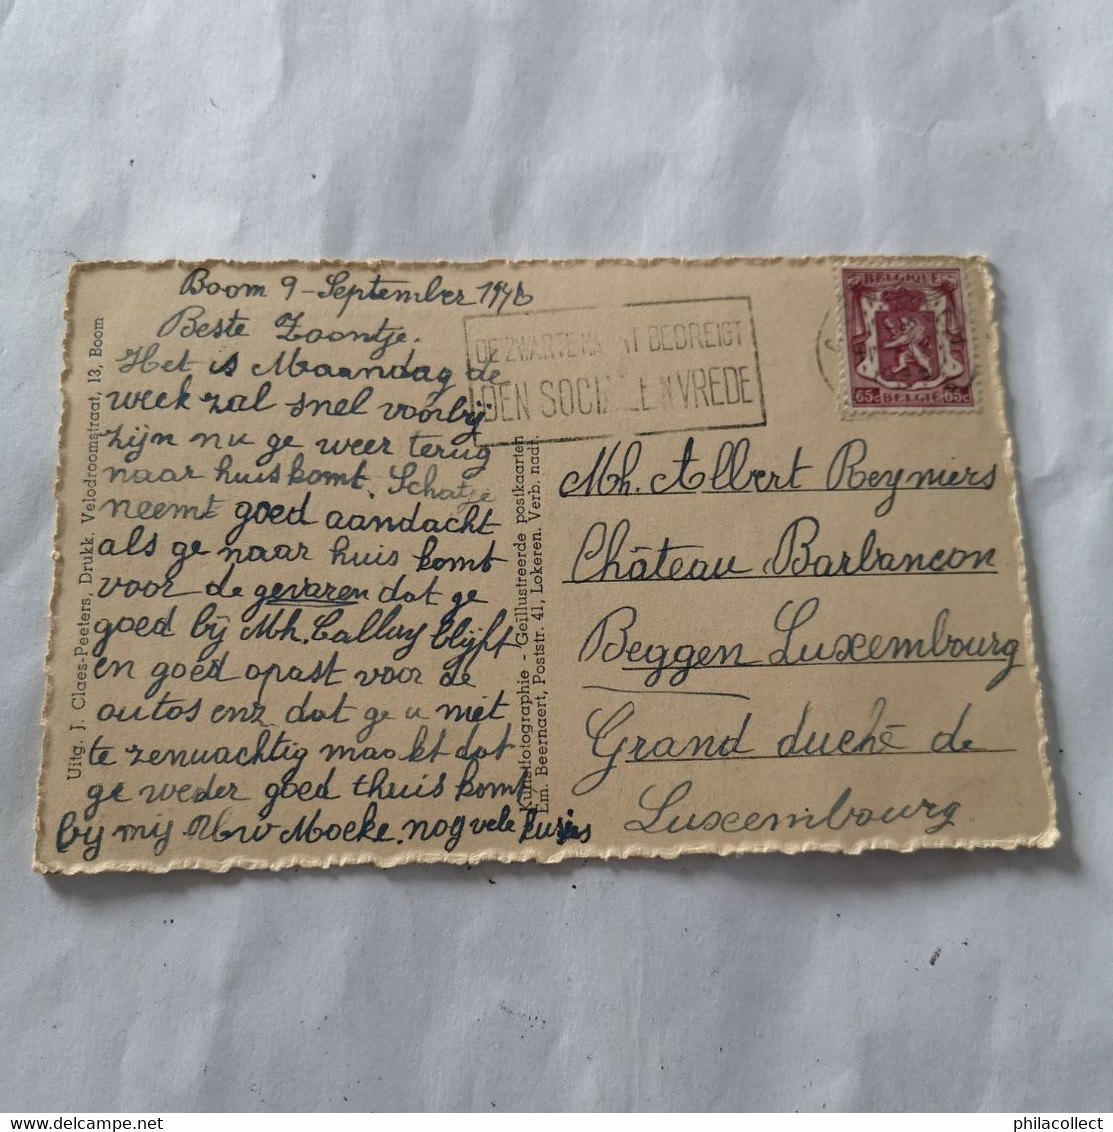 Boom 9 - September 1946
Beste Zoontje.
Het is Maandag de
week zal snel voorbij
zijn nu ge weer terug
naar huis komt. Schatje
neemt goed aandacht
als ge naar huis komt
voor de gevaren dat ge
goed bij Mh. Calluy blijft
en goed opast voor de
autos enz dat ge u niet
te zenuachtig maakt dat
ge weder goed thuis komt
bij mij Uw Moeke. nog vele kusjes
Uitg. J. Claes-Peeters, Drukk. Velodroomstraat, 13, Boom
Kunstfotographie - Geïllustreerde postkaarten
Em. Beernaert, Poststr. 41, Lokeren. Verb. nadr.
DE ZWARTE MA T BEDREIGT
DEN SOCIALEN VREDE
BELGIQUE
65c BELGIË 65c
Mh. Albert Reymers
Château Barbancon
Beggen Luxembourg
Grand duché de
Luxembourg
philacollect